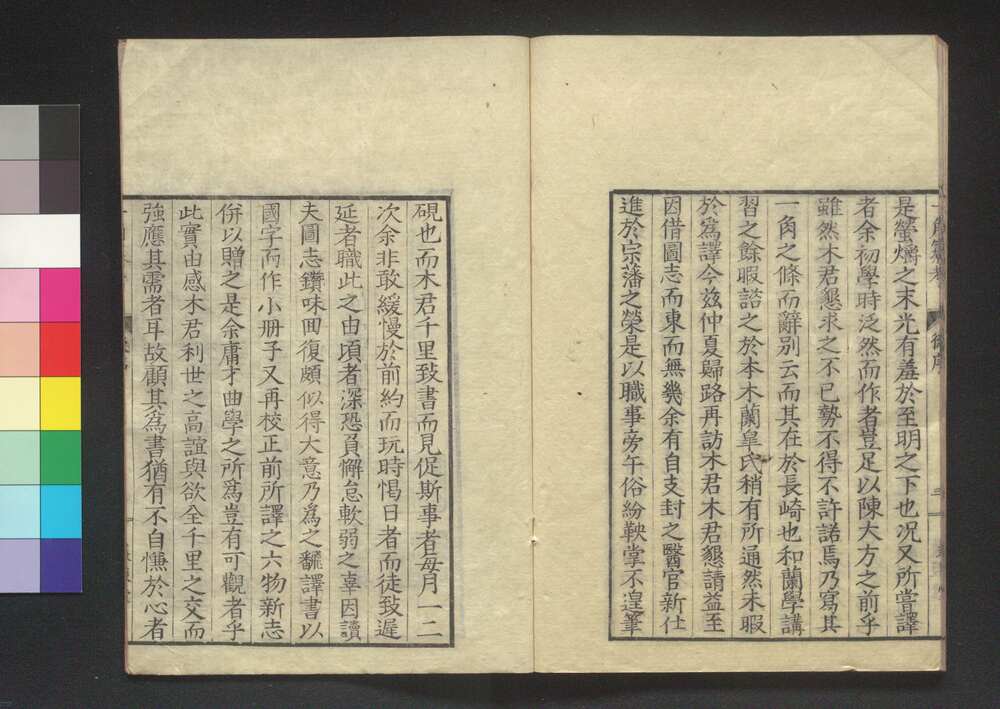 是螢爝之末光有羞於至明之下也况又所嘗譯
者余初學時泛然而作者豈足以陳大方之前乎
雖然木君懇求之不已勢不得不許諾焉乃寫其
一角之條而辭別云而其在於長崎也和蘭學講
習之餘暇諮之於本木蘭皐氏稍有所通然未暇
於爲譯今玆仲夏歸路再訪木君木君懇請益至
因借圖志而東而無幾余有自支封之醫官新仕
進於宗藩之榮是以職事旁午俗紛鞅掌不遑筆
硯也而木君千里致書而見促斯事者每月一二
次余非敢緩慢於前約而玩時愒日者而徒致遲
延者職此之由頃者深恐負懈怠軟弱之辜因讀
夫圖志鑽味回復頗似得大意乃爲之飜譯書以
國字而作小册子又再校正前所譯之六物新志
併以贈之是余庸才曲學之所爲豈有可觀者乎
此實由感木君利世之高誼與欲全千里之交而
強應其需者耳故顧其爲書猶有不自慊於心者